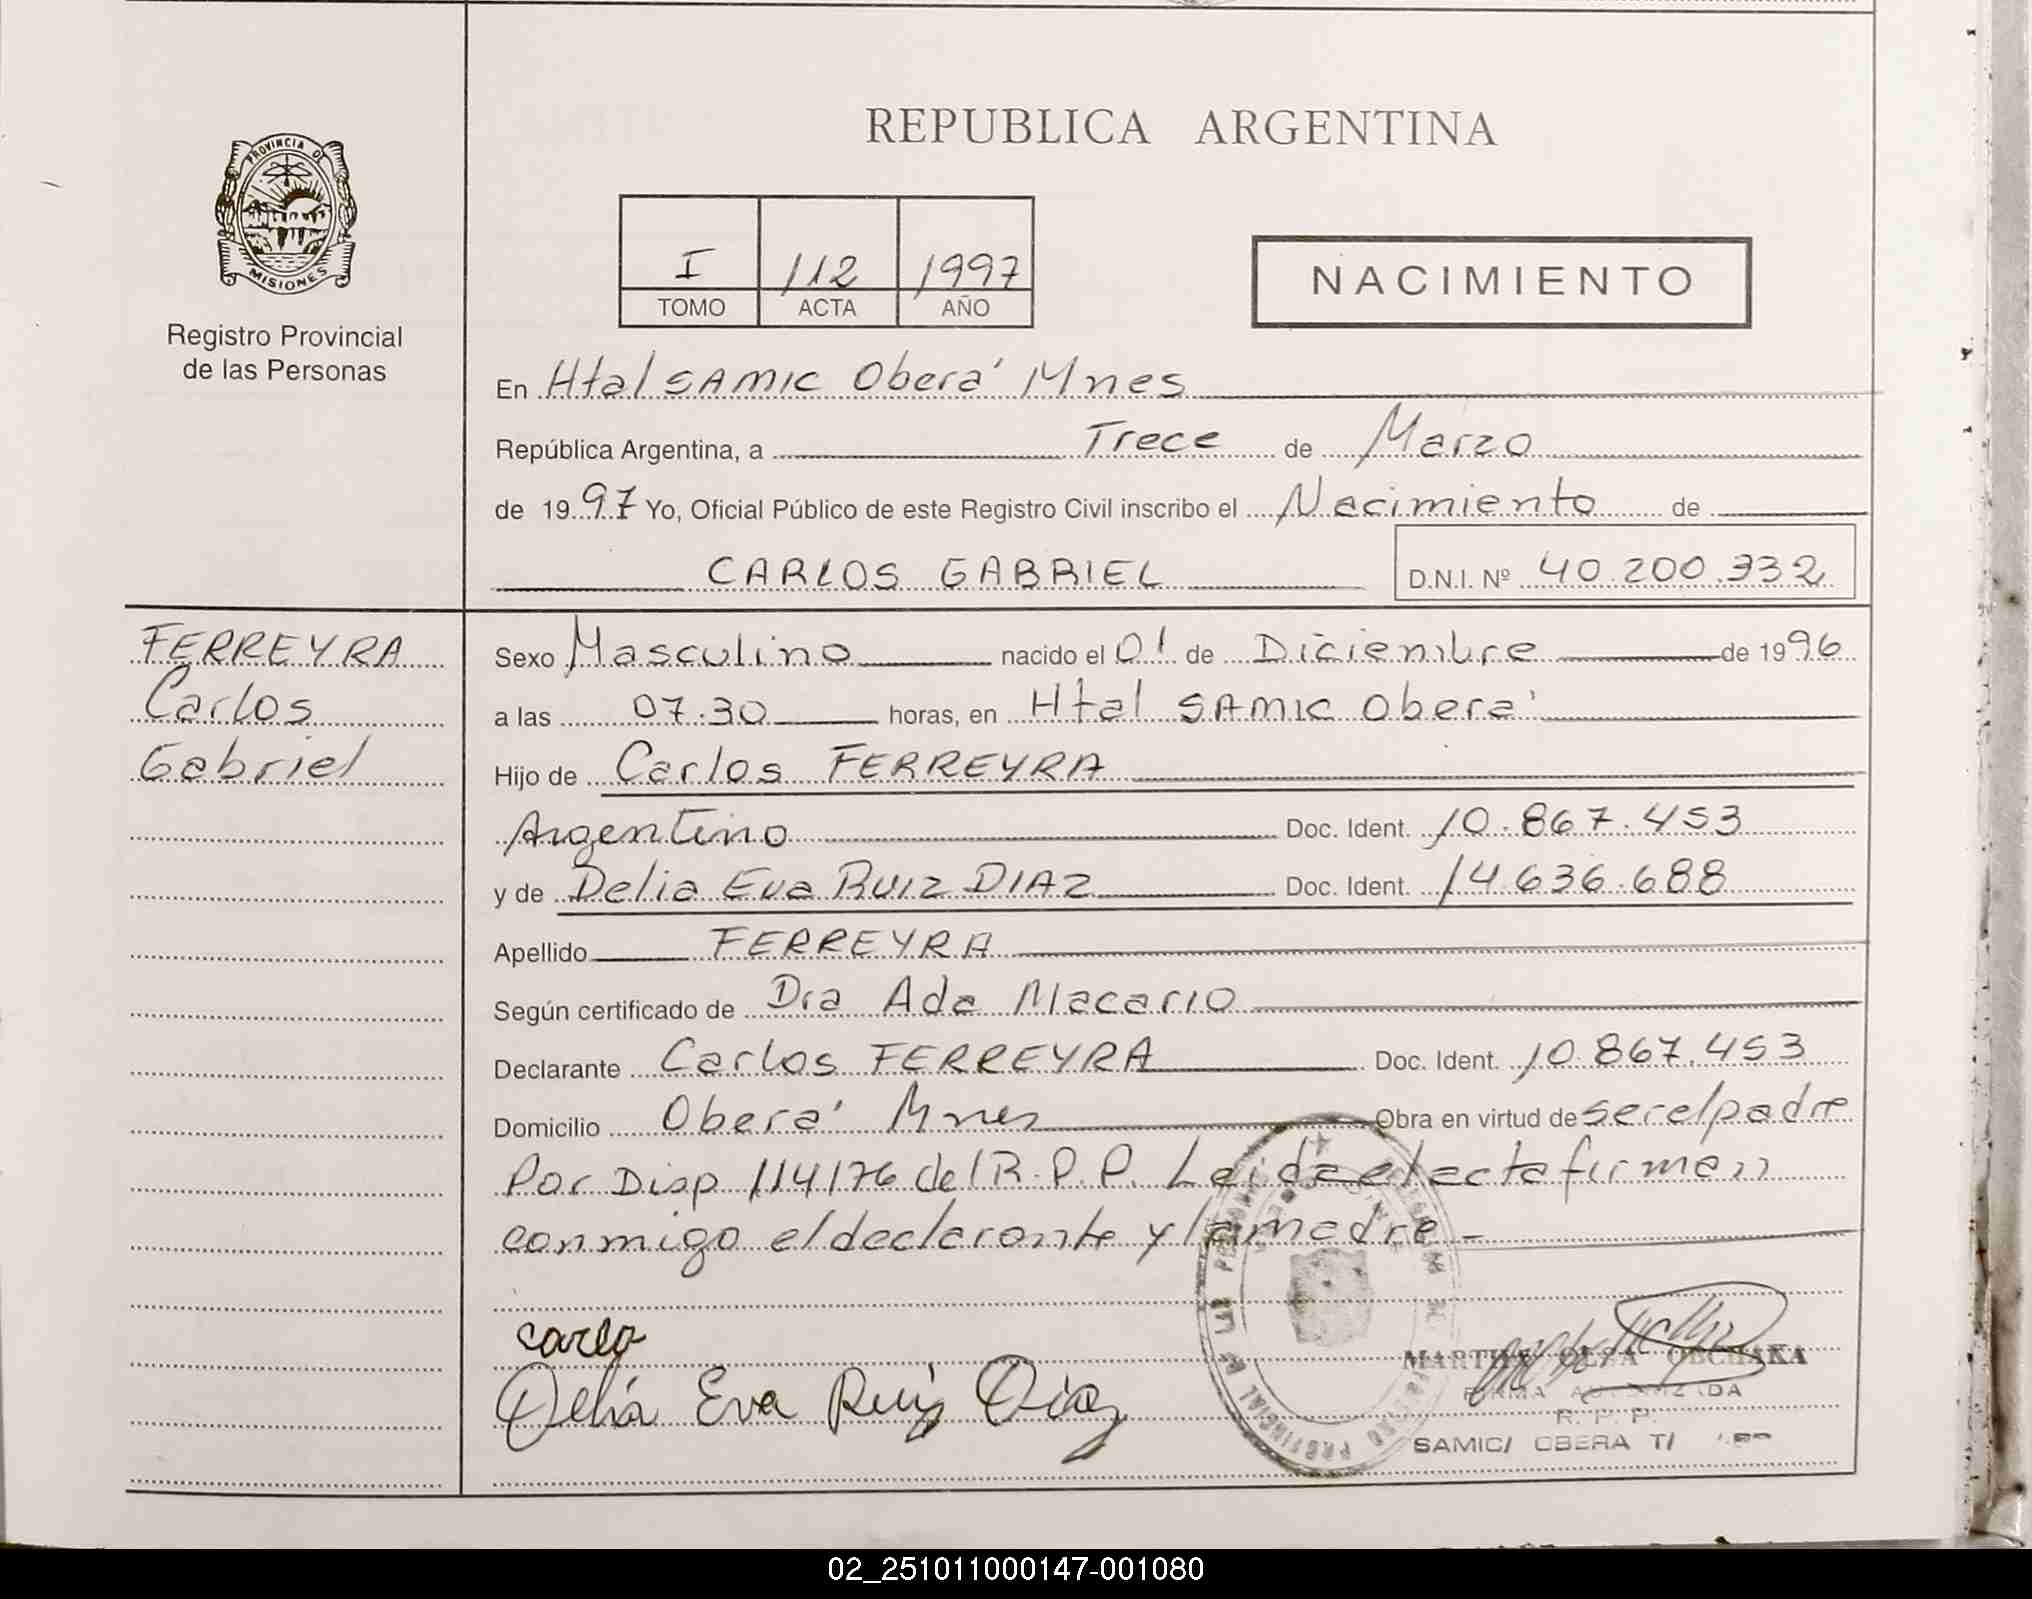 REPUBLICA ARGENTINA
PROVINCIA DE
MISIONES
Registro Provincial
de las Personas
I 112 1997
TOMO ACTA AÑO
NACIMIENTO
En Htal SAMIC Oberá Mnes
República Argentina, a Trece de Marzo
de 1997 Yo, Oficial Público de este Registro Civil inscribo el Nacimiento de
CARLOS GABRIEL D.N.I. Nº 40.200.332
FERREYRA
Carlos
Gabriel
Sexo Masculino nacido el 01 de Diciembre de 1996
a las 07.30 horas, en Htal SAMIC Oberá
Hijo de Carlos FERREYRA
Argentino Doc. Ident. 10.867.453
y de Delia Eva RUIZ DIAZ Doc. Ident. 14.636.688
Apellido FERREYRA
Según certificado de Dra Ada Macario
Declarante Carlos FERREYRA Doc. Ident. 10.867.453
Domicilio Oberá Mnes Obra en virtud de ser el padre
Por Disp 114/76 del R.P.P. Leida el acta firman
conmigo el declarante y la madre -
Carlo
Delia Eva Ruiz Diaz
MARTHA OLGA OBCHAKA
FIRMA AUTORIZADA
R. P. P.
SAMIC/ OBERA
02_251011000147-001080